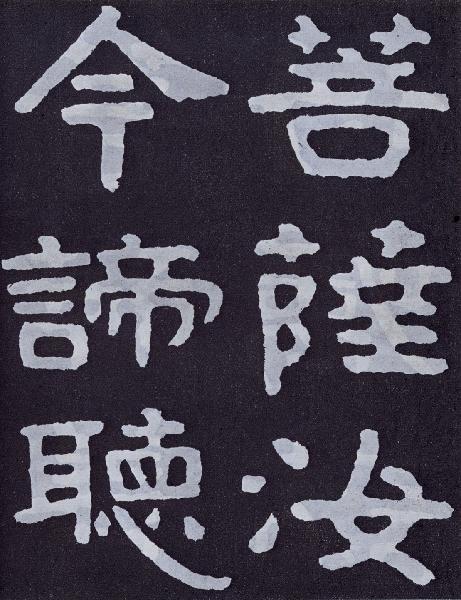 菩薩汝
今諦聽